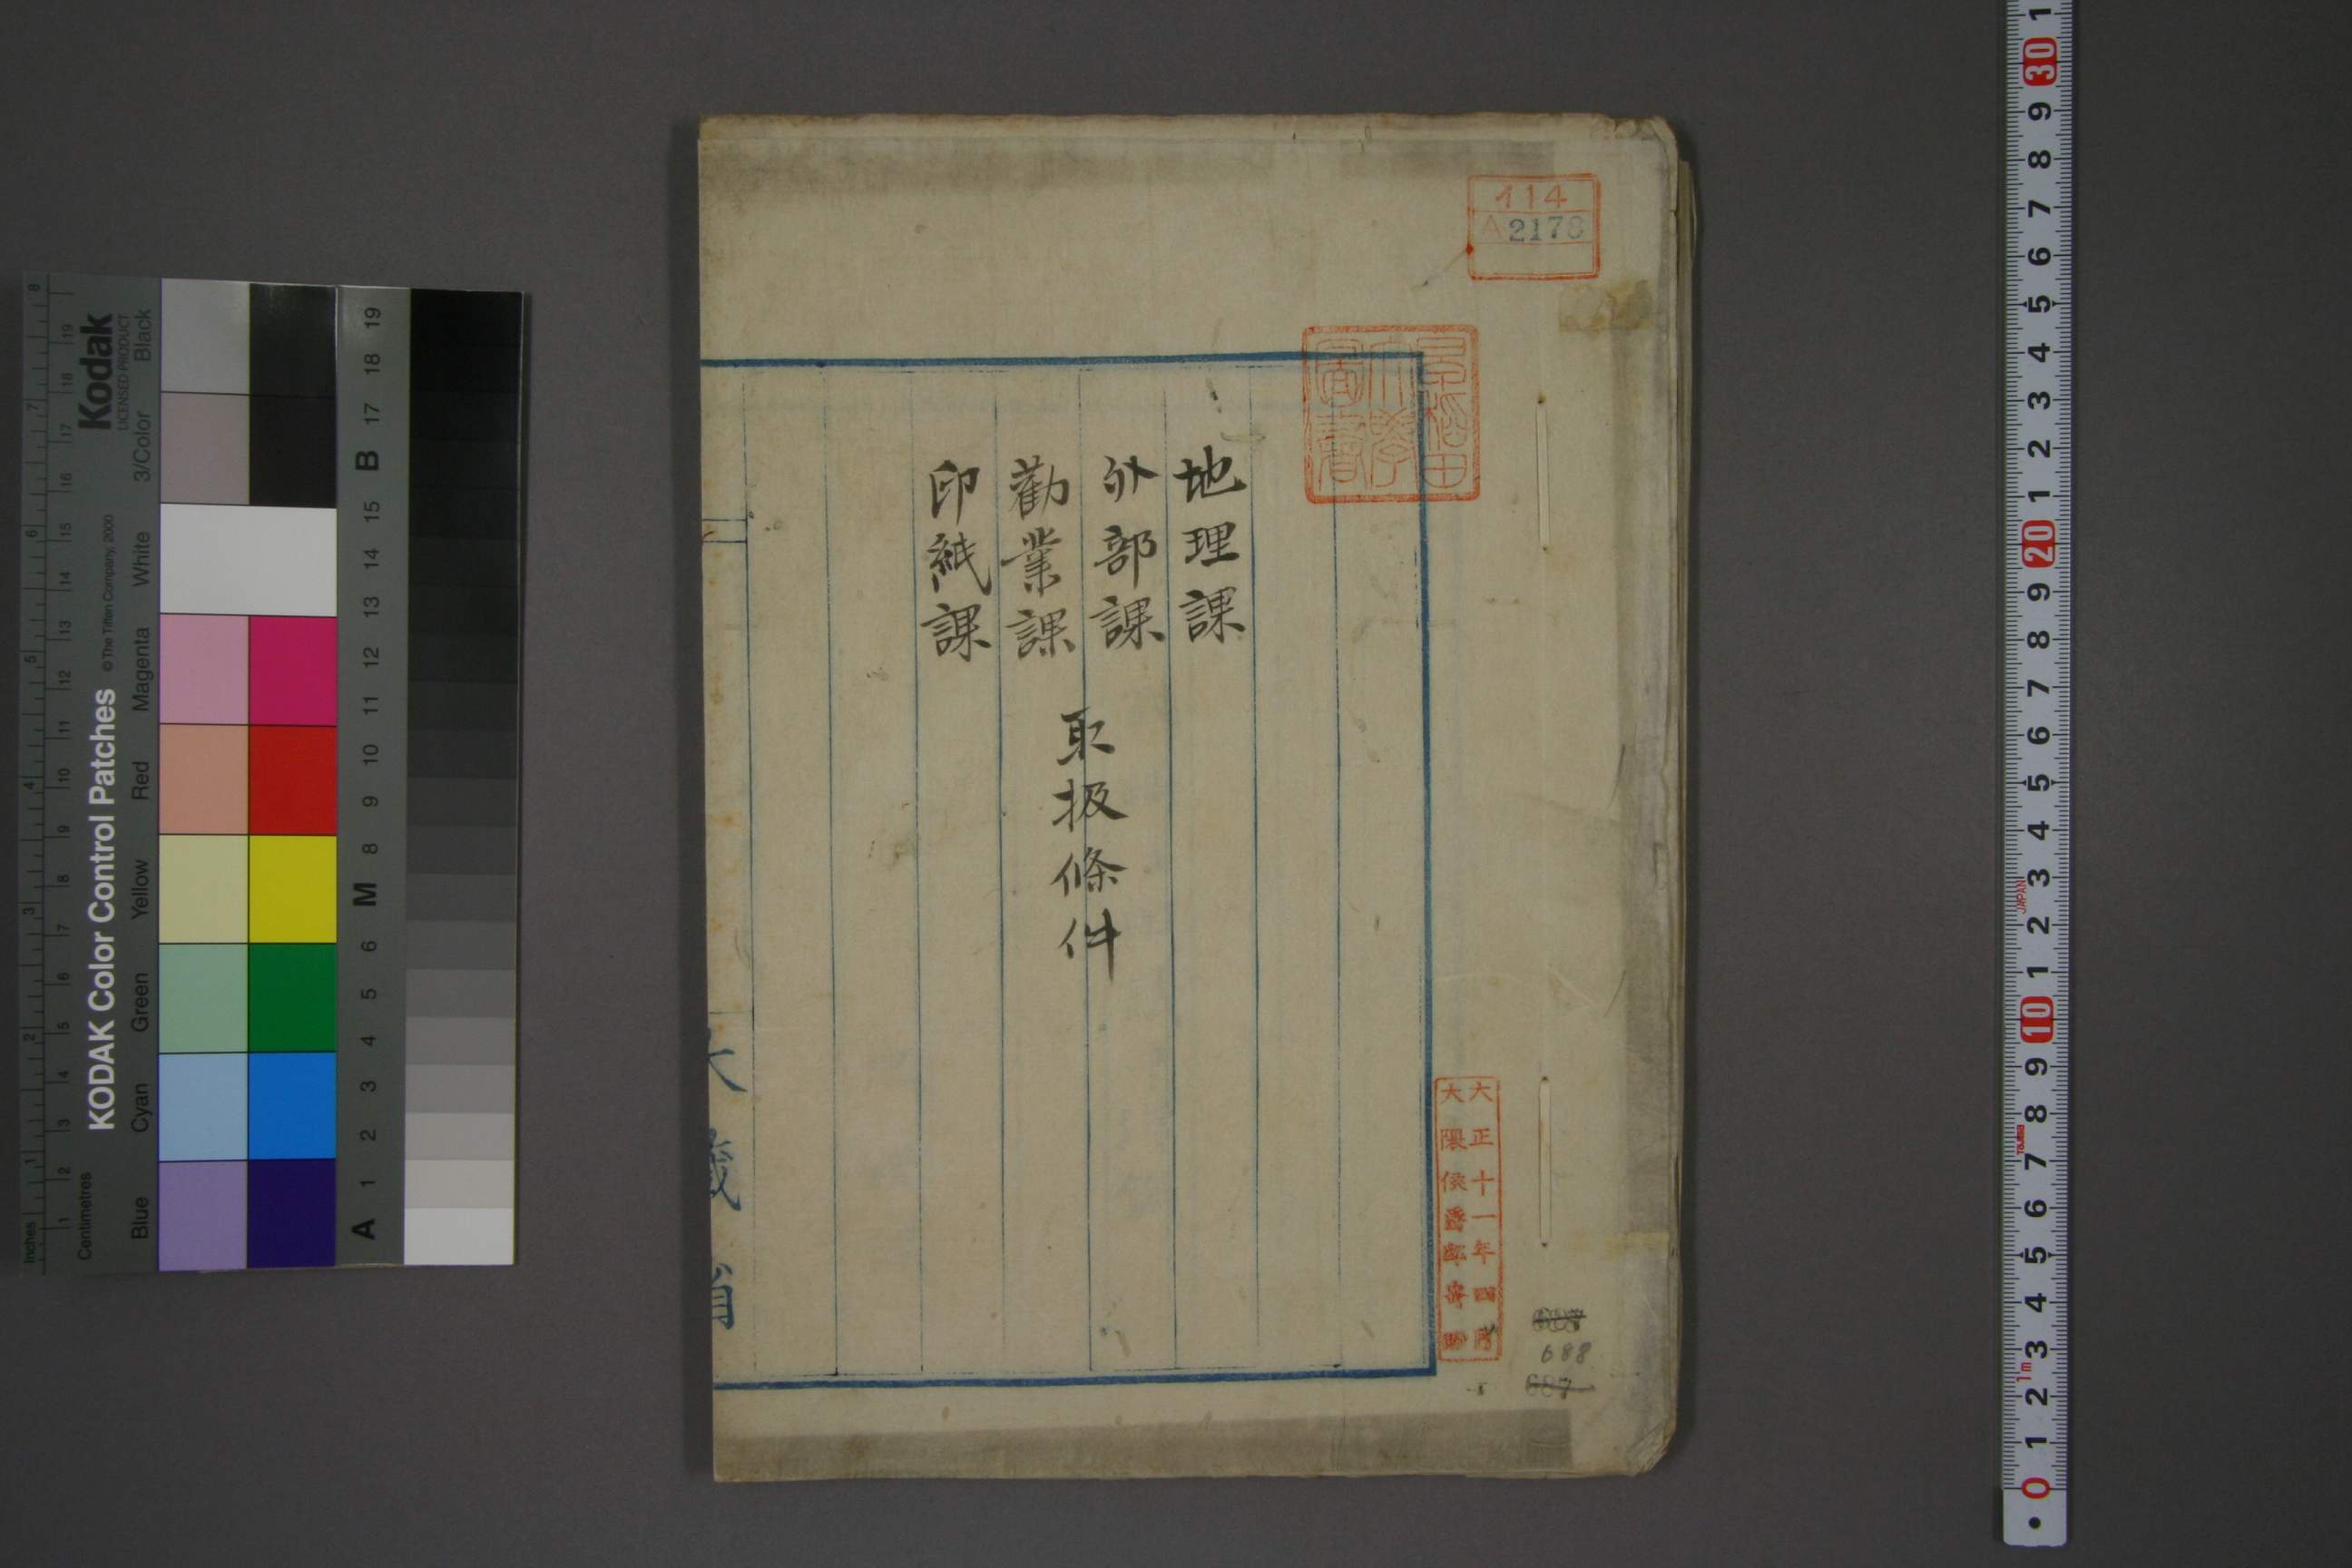 イ14
A2178
早稲田
大學
圖書
地理課
外部課
勸業課
印紙課
取扱條件
大藏省
大正十一年四月
大隈侯爵家寄贈
688
687
KODAK Color Control Patches
© The Tiffen Company, 2000
Kodak
LICENSED PRODUCT
Inches
Centimetres
Blue
Cyan
Green
Yellow
Red
Magenta
White
3/Color
Black
A 1 2 3 4 5 6 M 8 9 10 11 12 13 14 15 B 17 18 19
JAPAN
1m